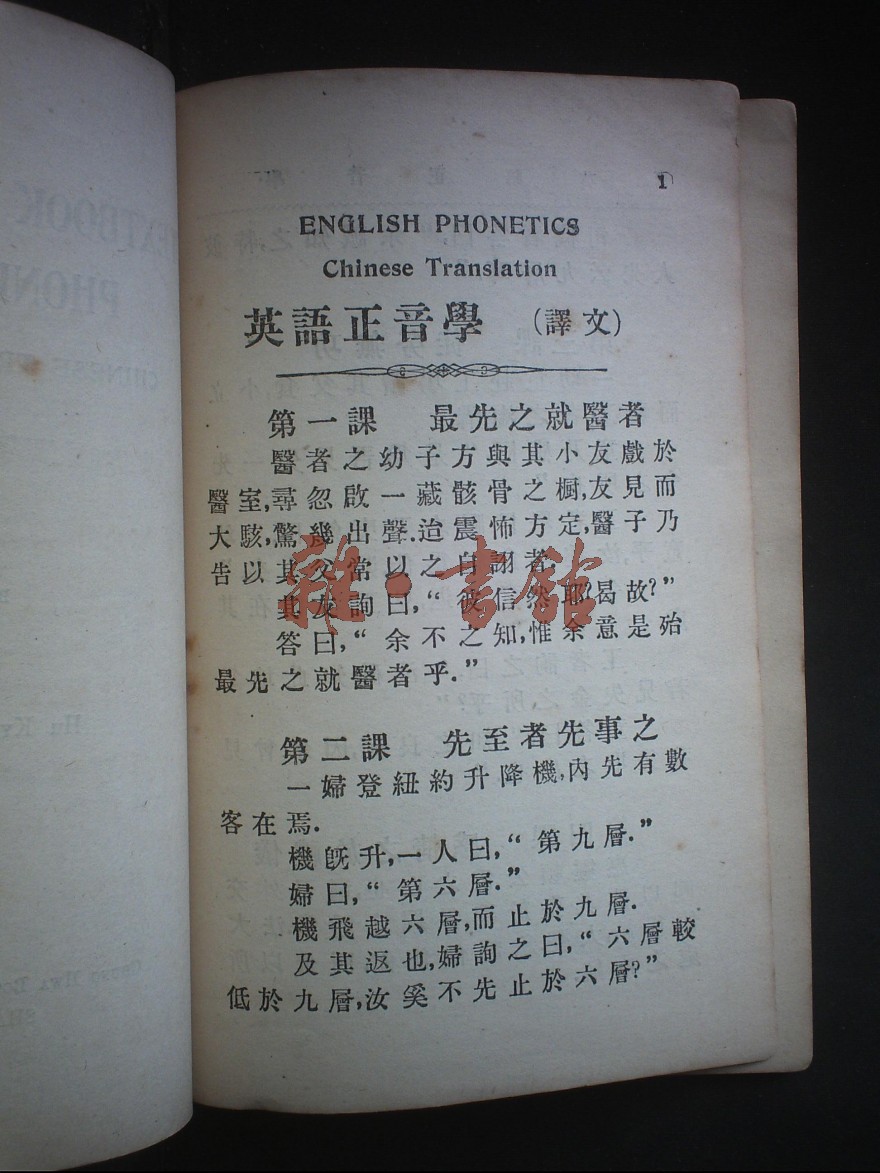 1
ENGLISH PHONETICS
Chinese Translation
英語正音學 (譯文)
第一課 最先之就醫者
醫者之幼子方與其小友戲於
醫室,尋忽啟一藏骸骨之橱,友見而
大駭,驚幾出聲.迨震怖方定,醫子乃
告以其父常以之自詡者.
其友詢曰,“彼信然耶?曷故?”
答曰,“余不之知,惟余意是殆
最先之就醫者乎.”
第二課 先至者先事之
一婦登紐約升降機,內先有數
客在焉.
機旣升,一人曰,“第九層.”
婦曰,“第六層.”
機飛越六層,而止於九層.
及其返也,婦詢之曰,“六層較
低於九層,汝奚不先止於六層?”
雜·書館
TEXTBOOK
PHON
CHINESE